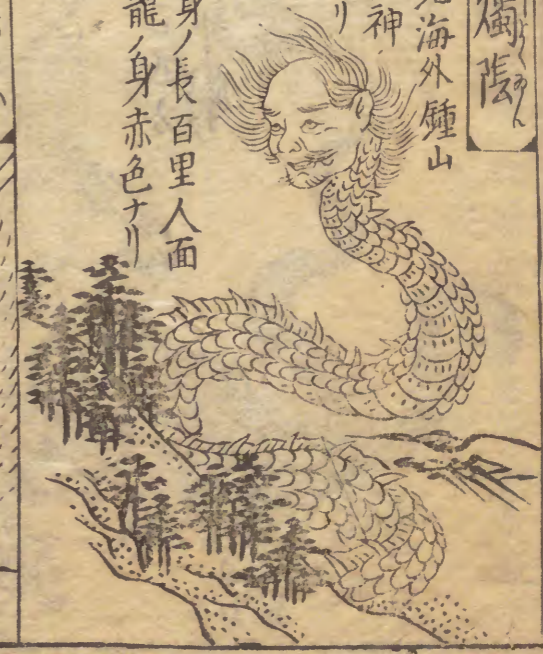 燭陰
しよくゐん
北海外鍾山
神
リ
身ノ長百里人面
龍ノ身赤色ナリ